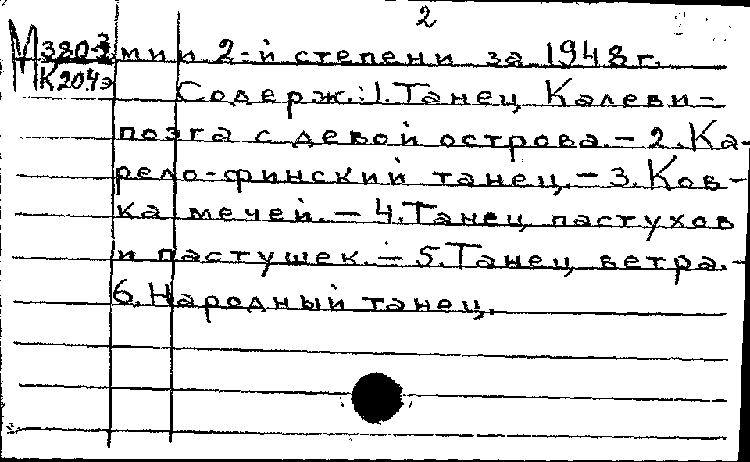 2
М 380-3/2 мии 2-й степени за 1948 г.
К204э Содерж.: 1. Танец Калеви-
поэга с девой острова. - 2. Ка-
рело-финский танец. - 3. Ков-
ка мечей. - 4. Танец пастухов
и пастушек. - 5. Танец ветра. -
6. Народный танец.